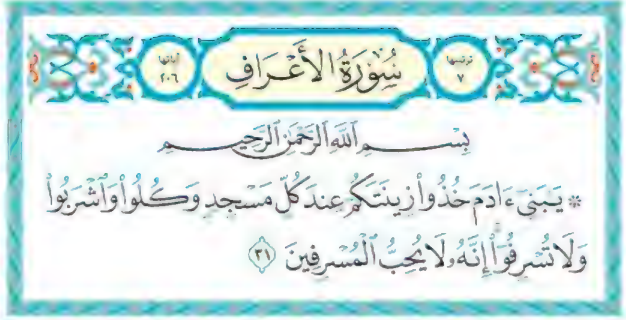 ترتيبها ٧ سُورَةُ الأَعْرَافِ آياتها ٢٠٦
بِسْمِ ٱللَّهِ ٱلرَّحْمَٰنِ ٱلرَّحِيمِ
۞ يَٰبَنِىٓ ءَادَمَ خُذُوا۟ زِينَتَكُمْ عِندَ كُلِّ مَسْجِدٍ وَكُلُوا۟ وَٱشْرَبُوا۟
وَلَا تُسْرِفُوٓا۟ إِنَّهُۥ لَا يُحِبُّ ٱلْمُسْرِفِينَ ٣١